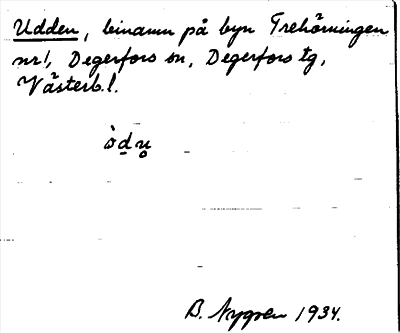 Udden, binamn på byn Trehörningen
nr 1, Degerfors sn, Degerfors tg,
Västerb. l.
B. Nygren 1934.